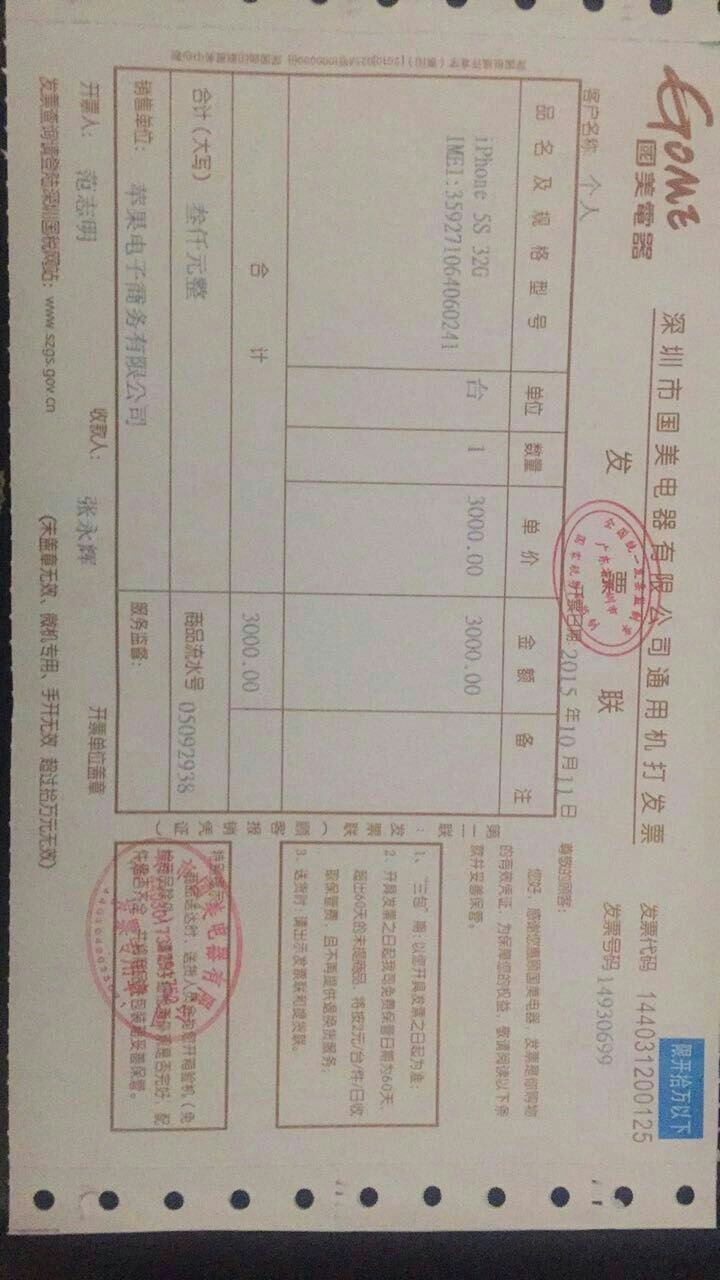 GOME
國美電器
深圳市国美电器有限公司通用机打发票
发票联
限开拾万以下
发票代码 144031200125
发票号码 14930699
客户名称 个人
开票日期 2015 年 10 月 11 日
品名及规格型号 单位 数量 单价 金额 备注
iPhone 5S 32G 台 1 3000.00 3000.00
IMEI:359271064060241
合计 3000.00
合计（大写） 叁仟元整 商品流水号 05092938
销售单位： 苹果电子商务有限公司 服务监督：
开票人： 范志明 收款人： 张永辉 开票单位盖章
发票查询请登陆深圳国税网站：www.szgs.gov.cn (未盖章无效、微机专用、手开无效 超过拾万元无效)
第二联：发票联（顾客报销凭证）
尊敬的顾客：
您好，感谢您惠顾国美电器，发票是您购物
的有效凭证，为保障您的权益，敬请阅读以下条
款并妥善保管。
1、“三包”期：以您开具发票之日起为准；
2、开具发票之日起我司免费保管日期为60天，
超过60天的未提商品，将按2元/台/件/日收
取保管费，且不再提供退换货服务；
3、送货时，请出示发票联和提货联。